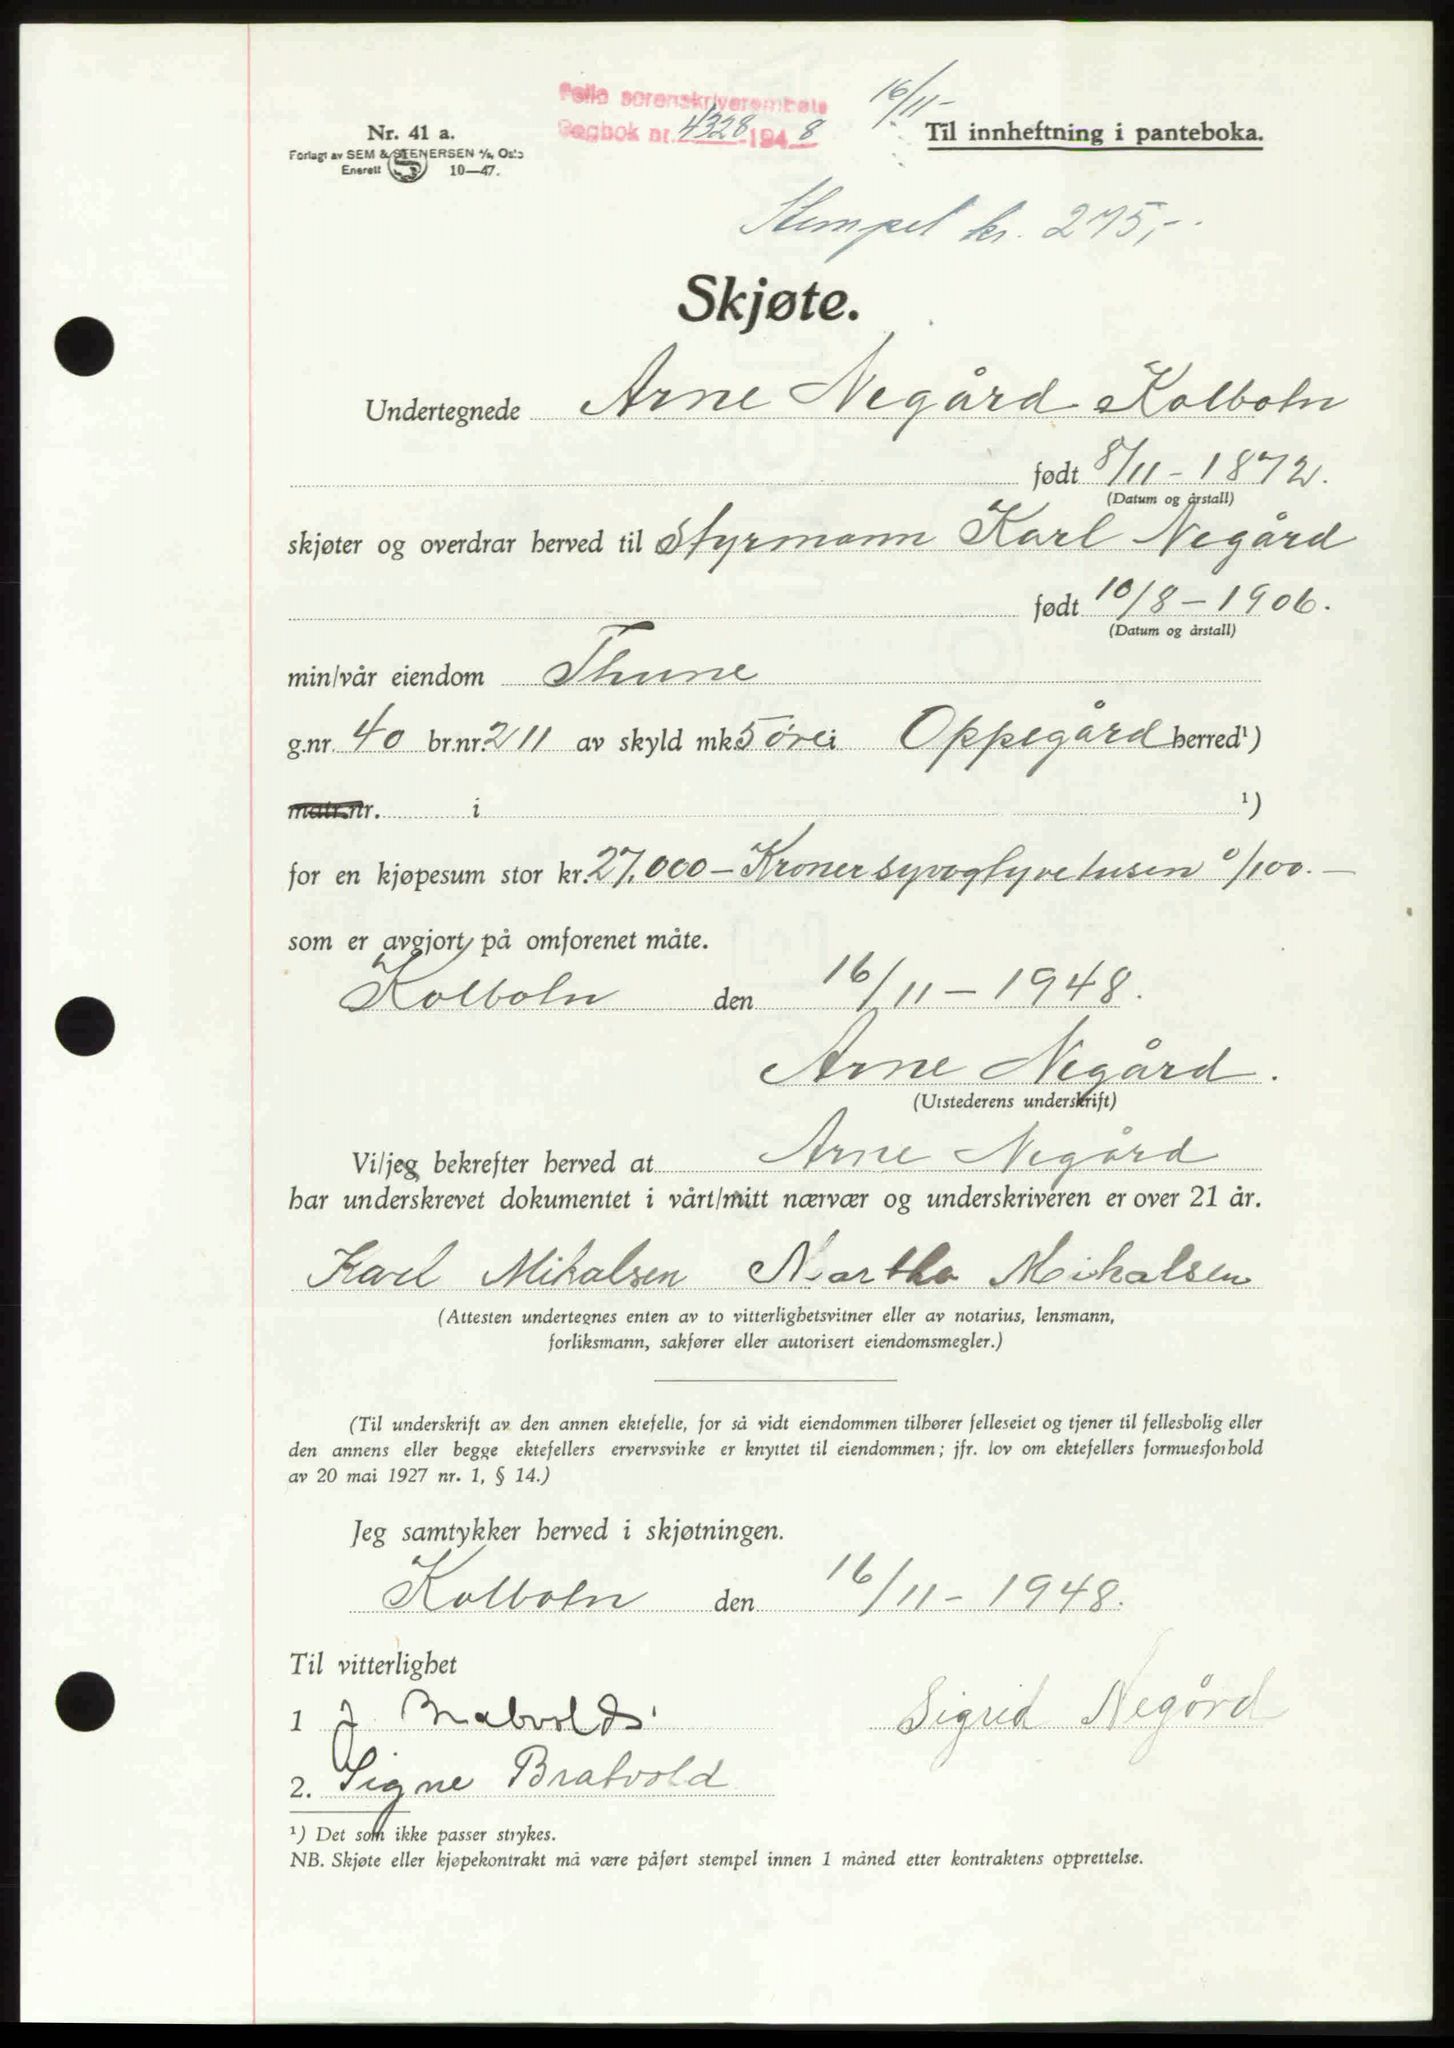 Follo sorenskriverembete
Dagbok nr. 4328-1948
16/11-
Til innheftning i panteboka.
Nr. 41 a.
Forlagt av SEM & STENERSEN A/S, Oslo
Enerett S 10—47.
Stempel kr. 275,-
Skjøte.
Undertegnede Arne Negård Kolbotn
født 8/11-1872.
(Datum og årstall)
skjøter og overdrar herved til Styrmann Karl Negård
født 10/8-1906.
(Datum og årstall)
min/vår eiendom Thune
g.nr. 40 br.nr. 211 av skyld mk. 5 øre i Oppegård herred¹)
matr.nr. i ¹)
for en kjøpesum stor kr. 27.000 – Kroner syvogtyvetusen 0/100. —
som er avgjort på omforenet måte.
Kolbotn den 16/11-1948.
Arne Negård.
(Utstederens underskrift)
Vi/jeg bekrefter herved at Arne Negård
har underskrevet dokumentet i vårt/mitt nærvær og underskriveren er over 21 år.
Karl Mikalsen Martha Mikalsen
(Attesten undertegnes enten av to vitterlighetsvitner eller av notarius, lensmann,
forliksmann, sakfører eller autorisert eiendomsmegler.)
(Til underskrift av den annen ektefelle, for så vidt eiendommen tilhører felleseiet og tjener til fellesbolig eller
den annens eller begge ektefellers ervervsvirke er knyttet til eiendommen; jfr. lov om ektefellers formuesforhold
av 20 mai 1927 nr. 1, § 14.)
Jeg samtykker herved i skjøtningen.
Kolbotn den 16/11-1948.
Til vitterlighet
1 J. Bratvold
Sigrid Negård
2. Signe Bratvold
¹) Det som ikke passer strykes.
NB. Skjøte eller kjøpekontrakt må være påført stempel innen 1 måned etter kontraktens opprettelse.